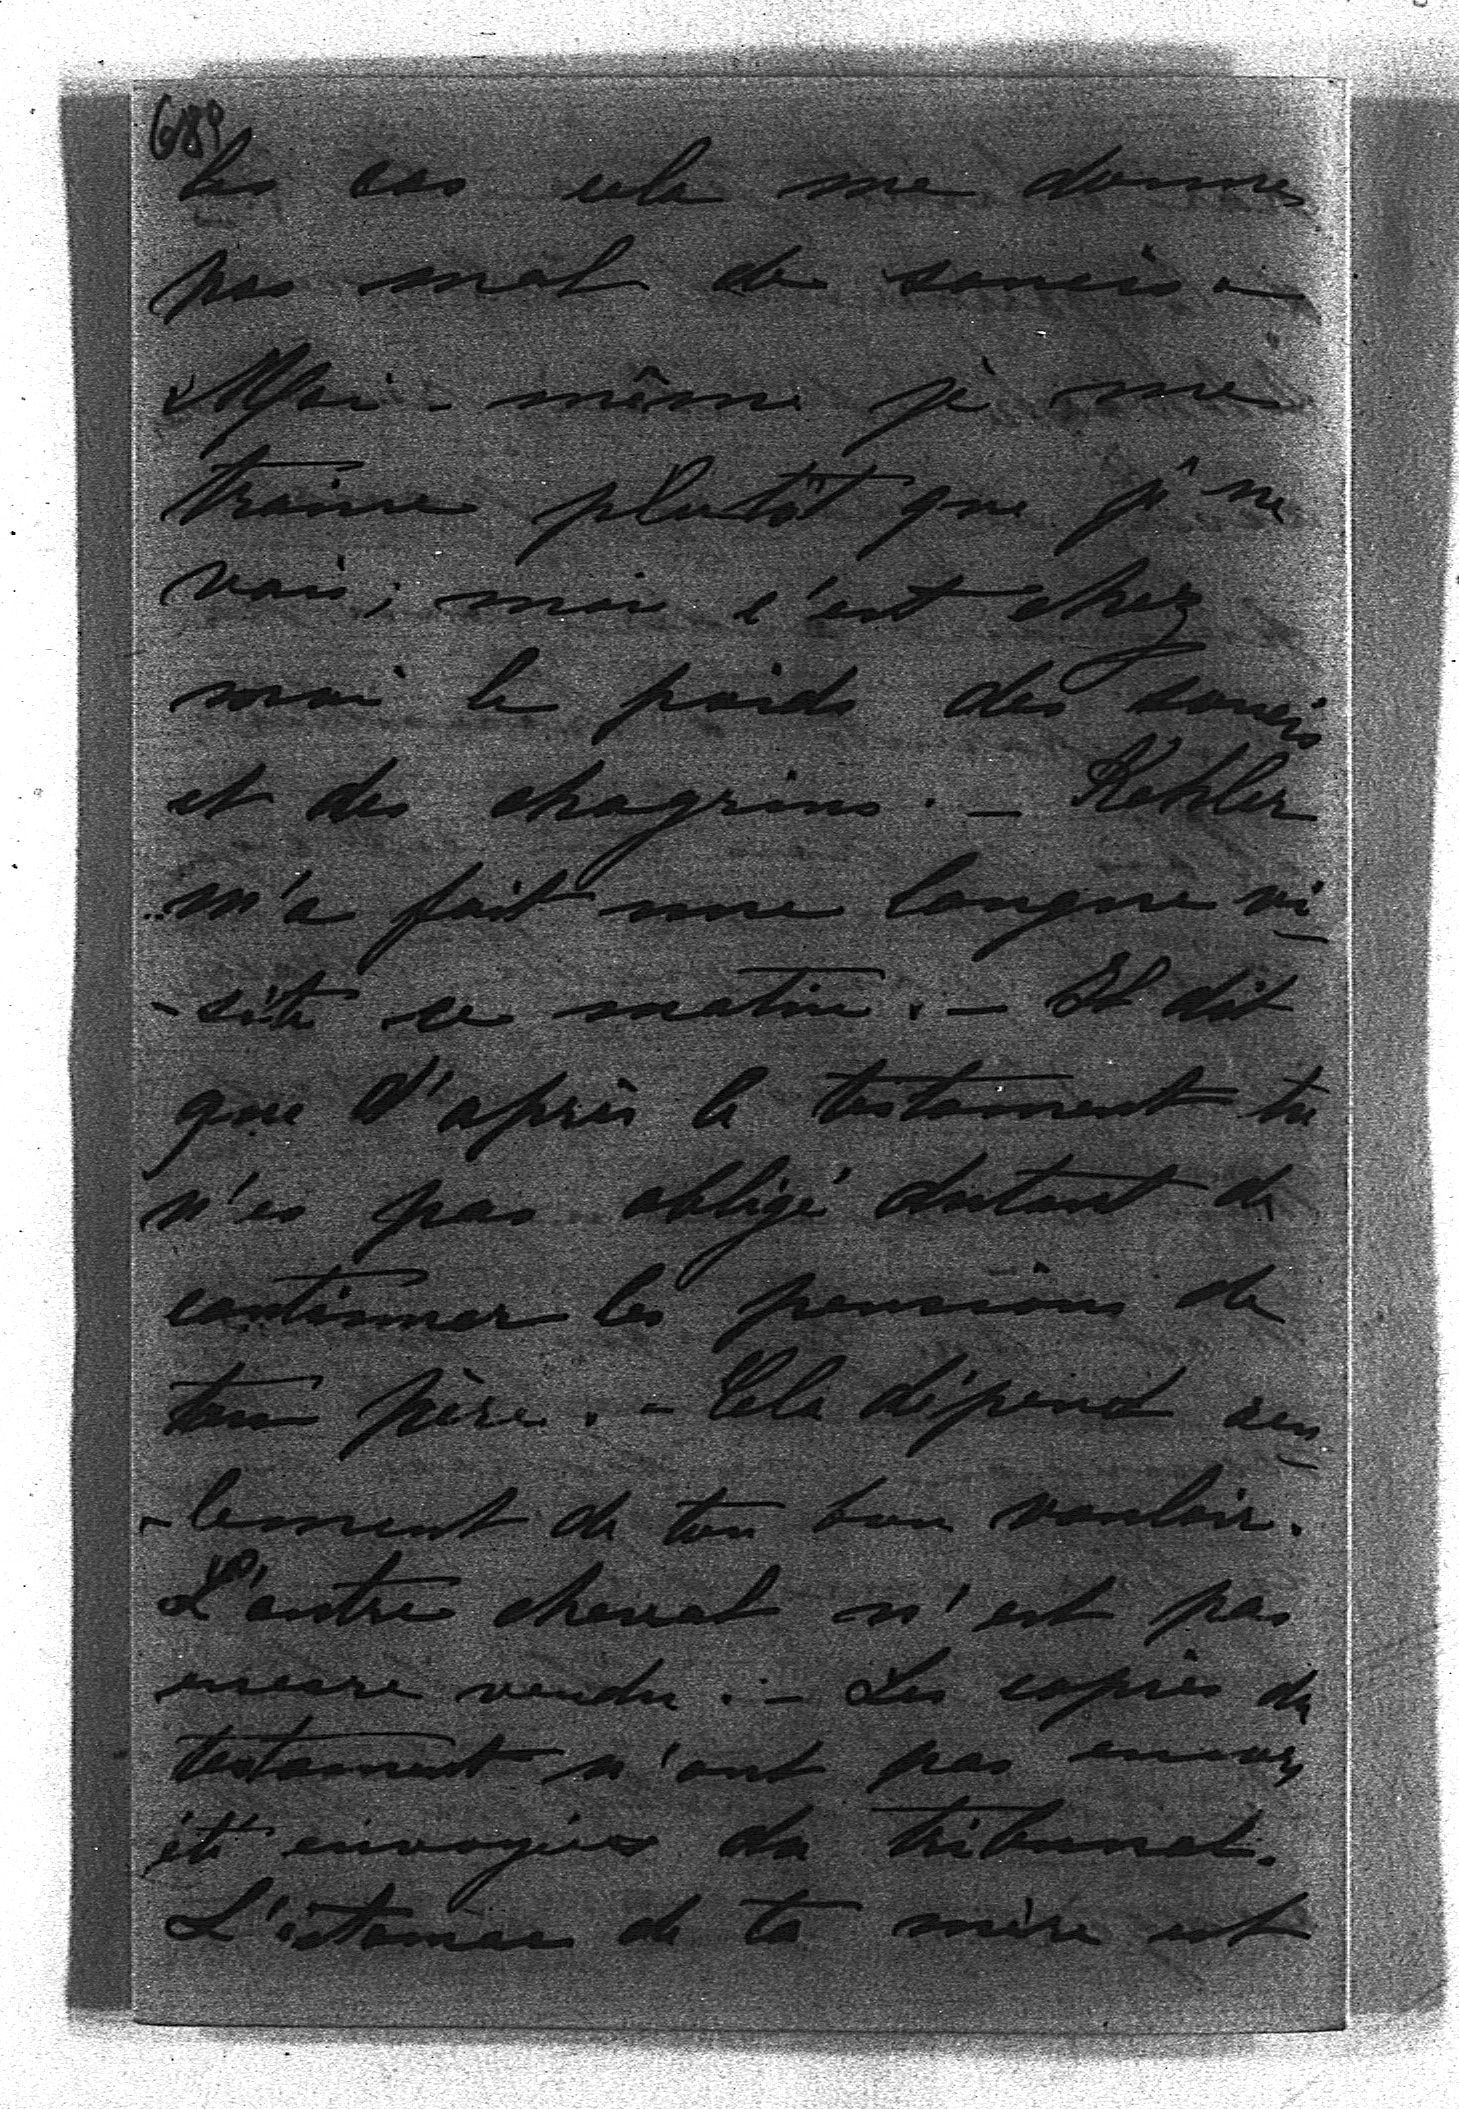 689
les cas cela me donne
pas mal de soucis -
Moi-même je me
traine plutôt que je ne
vais; mais c'est chez
moi le poids des soucis
et des chagrins. - Kehler
m'a fait une longue vi
-site ce matin. - Il dit
que d'après le testament tu
n'es pas obligé du tout de
continuer les pensions de
ton père. - Cela dépend seu
-lement de ton bon vouloir.
L'autre cheval n'est pas
encore vendu. - Les copies du
testament n'ont pas encore
été envoyées du tribunal.
L'estomac de ta mère est